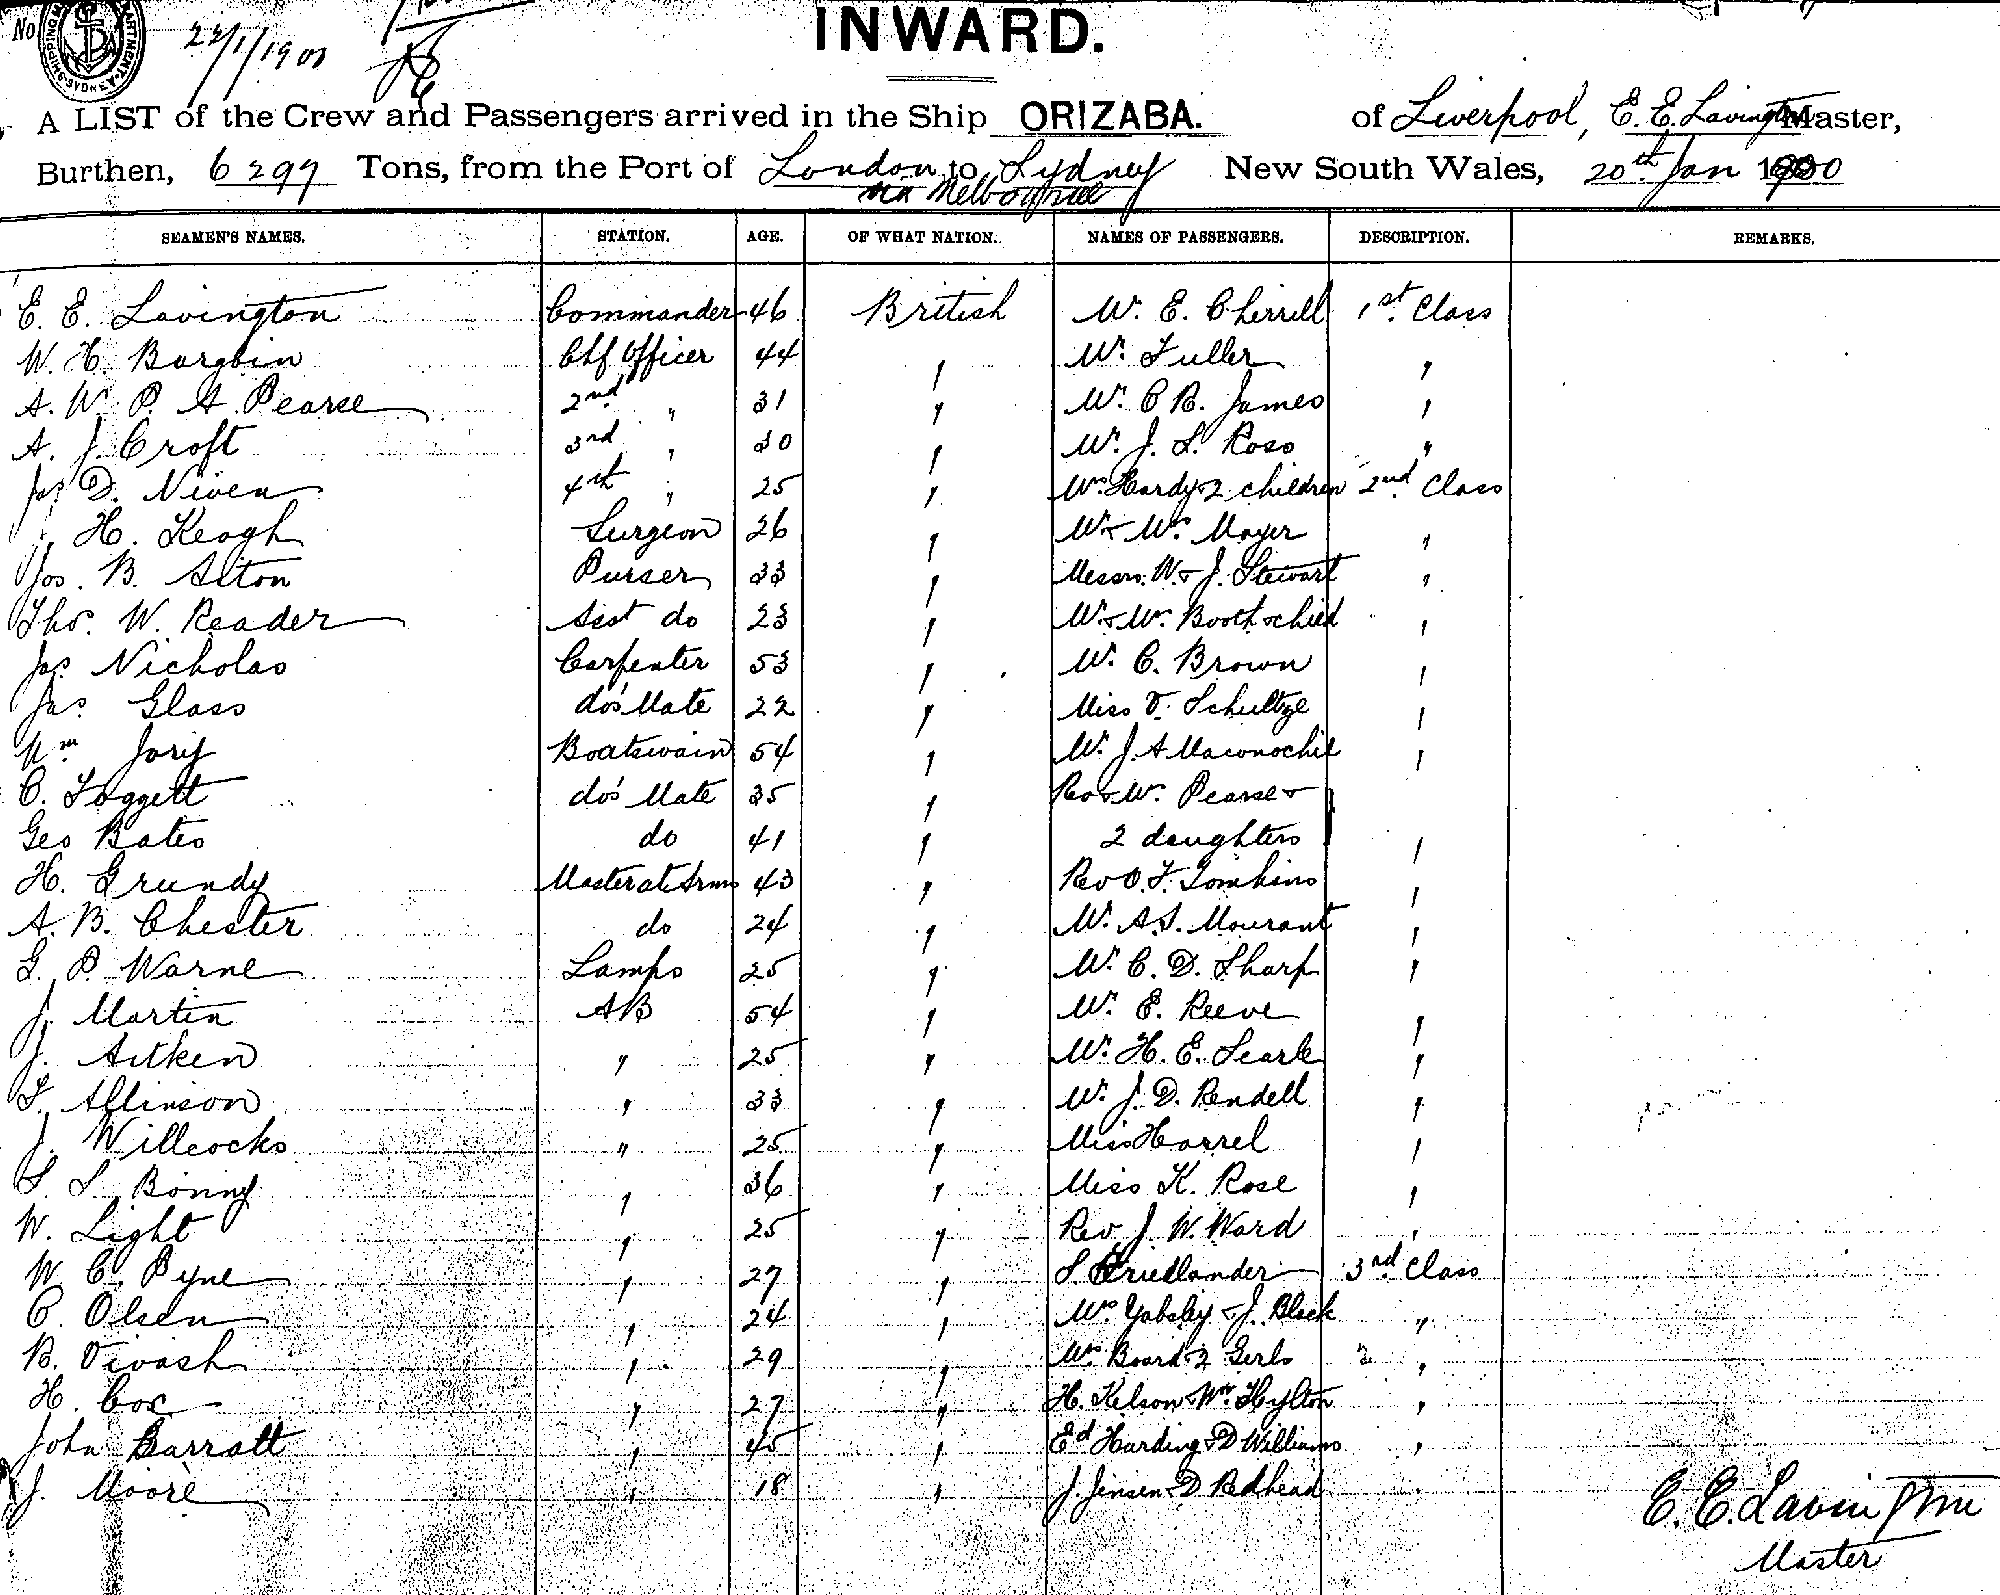 No
22/1/1900
INWARD.
A LIST of the Crew and Passengers arrived in the Ship ORIZABA. of Liverpool, E. E. Lavington Master,
Burthen, 6299 Tons, from the Port of London to Sydney New South Wales, 20th Jan 1900
via Melbourne
SEAMEN'S NAMES. STATION. AGE. OF WHAT NATION. NAMES OF PASSENGERS. DESCRIPTION. REMARKS.
E. E. Lavington Commander 46 British Mr. E. Cherrill 1st Class
W. H. Bargoin Chf Officer 44 " Mr. Fuller "
A. W. P. A. Pearse 2nd " 31 " Mr. C. B. James "
A. J. Croft 3rd " 30 " Mr. J. L. Ross "
Jas D. Niven 4th " 25 " Mrs Hardy & 2 children 2nd Class
H. Keogh Surgeon 26 " Mr & Mrs Mayer "
Jos. B. Alton Purser 33 " Messrs. W. & J. Stewart "
Thos. W. Reader Asst do 23 " Mr & Mrs Booth & child "
Jas. Nicholas Carpenter 53 " Mr. C. Brown "
Jas. Glass do's Mate 22 " Miss V. Schultze "
Wm Jory Boatswain 54 " Mr. J. A Maconochie "
C. Foggett do's Mate 35 " Rev & Mrs. Pearse &
Geo Bates do 41 " 2 daughters "
H. Grundy Master at Arms 43 " Rev O. F. Tomkins "
A. B. Chester do 24 " Mr. A. S. Mourant "
G. P. Warne Lamps 25 " Mr. C. D. Sharp "
J. Martin AB 54 " Mr. E. Reeve "
J. Aitken " 25 " Mr. H. E. Searle "
F. Allinson " 33 " Mr. J. D. Rendell "
J. Willcocks " 25 " Miss Harrel "
S. S. Bonny " 36 " Miss K. Rose "
W. Light " 25 " Rev. J. W. Ward "
W. C. Pyne " 27 " S Friedlander 3rd Class
C. Olsen " 24 " Mrs Yabsley & J. Black "
B. Vivash " 29 " Mrs Board & 2 Girls "
H. Cox " 27 " H. Kelson & Wm Hylton "
John Barratt " 45 " Ed Harding & D Williams "
J. Moore " 18 " J. Jensen & D Redhead "
E. E. Lavington
Master